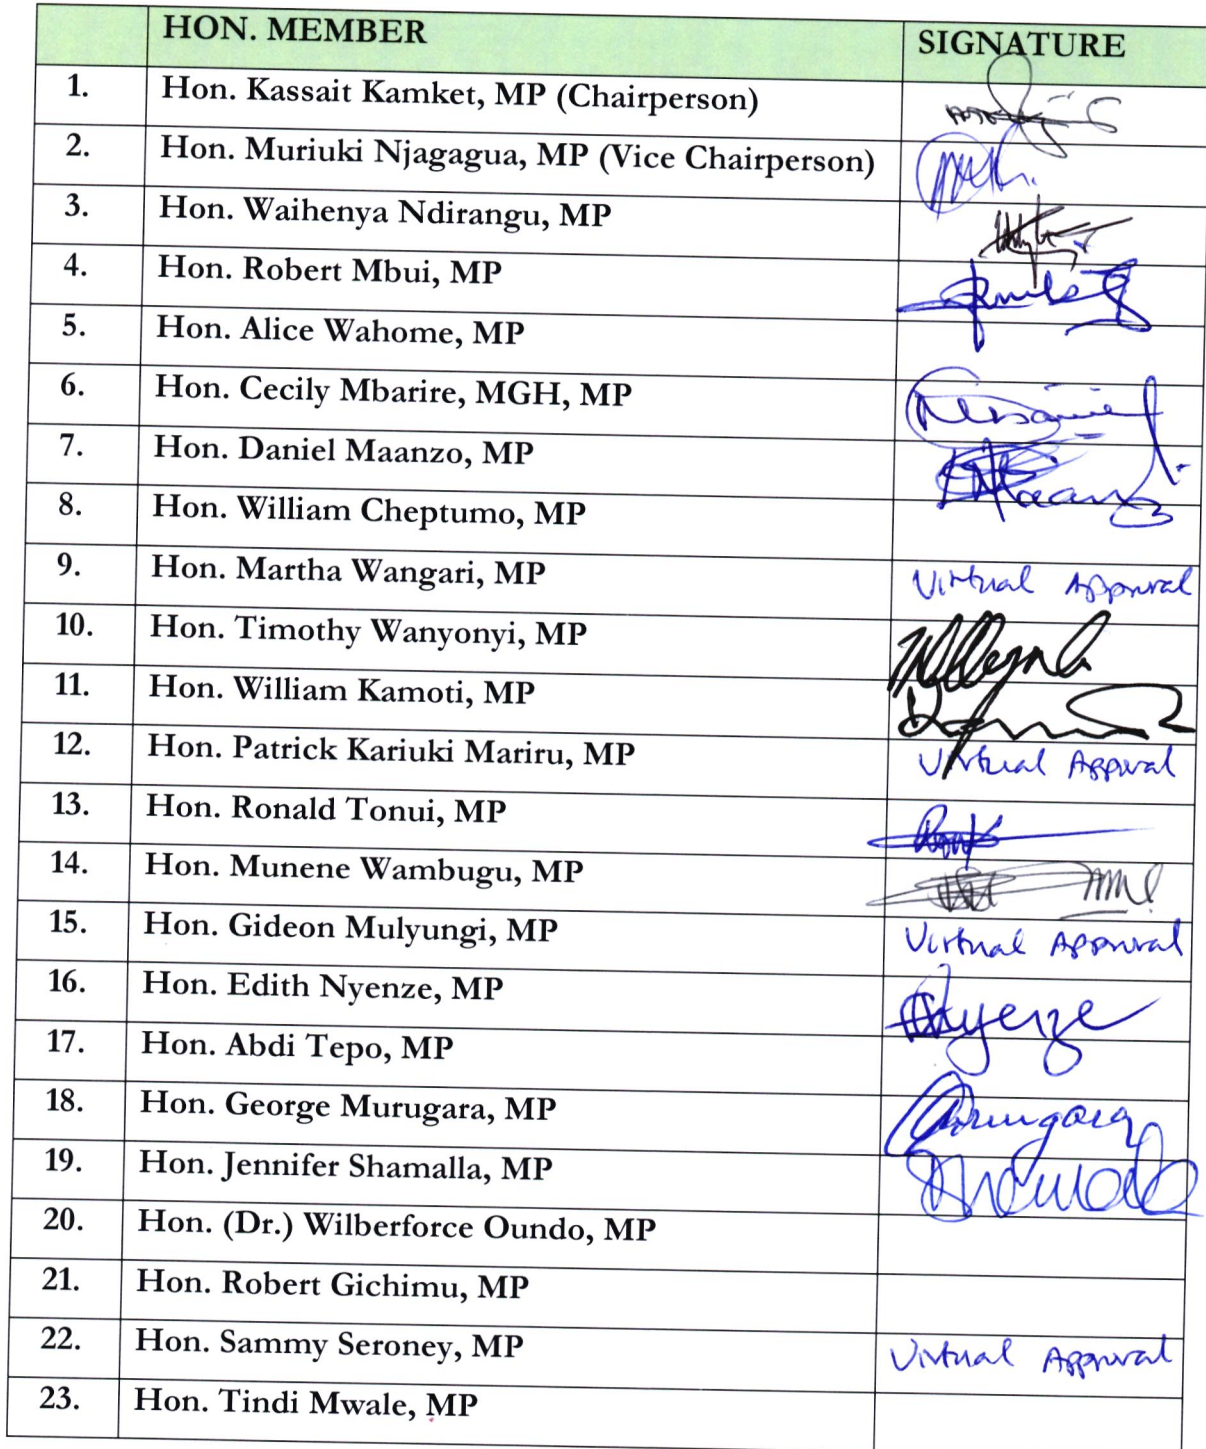 HON. MEMBER SIGNATURE
1. Hon. Kassait Kamket, MP (Chairperson)
2. Hon. Muriuki Njagagua, MP (Vice Chairperson)
3. Hon. Waihenya Ndirangu, MP
4. Hon. Robert Mbui, MP
5. Hon. Alice Wahome, MP
6. Hon. Cecily Mbarire, MGH, MP
7. Hon. Daniel Maanzo, MP
8. Hon. William Cheptumo, MP
9. Hon. Martha Wangari, MP Virtual Approval
10. Hon. Timothy Wanyonyi, MP
11. Hon. William Kamoti, MP
12. Hon. Patrick Kariuki Mariru, MP Virtual Approval
13. Hon. Ronald Tonui, MP
14. Hon. Munene Wambugu, MP
15. Hon. Gideon Mulyungi, MP Virtual Approval
16. Hon. Edith Nyenze, MP
17. Hon. Abdi Tepo, MP
18. Hon. George Murugara, MP
19. Hon. Jennifer Shamalla, MP
20. Hon. (Dr.) Wilberforce Oundo, MP
21. Hon. Robert Gichimu, MP
22. Hon. Sammy Seroney, MP Virtual Approval
23. Hon. Tindi Mwale, MP